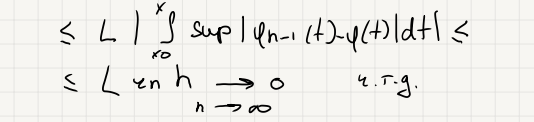 ≤ L | ∫ₓ₀ˣ sup |φn-1(t)-φ(t)|dt| ≤
≤ L εn h ⟶ 0 ч.т.д.
n → ∞